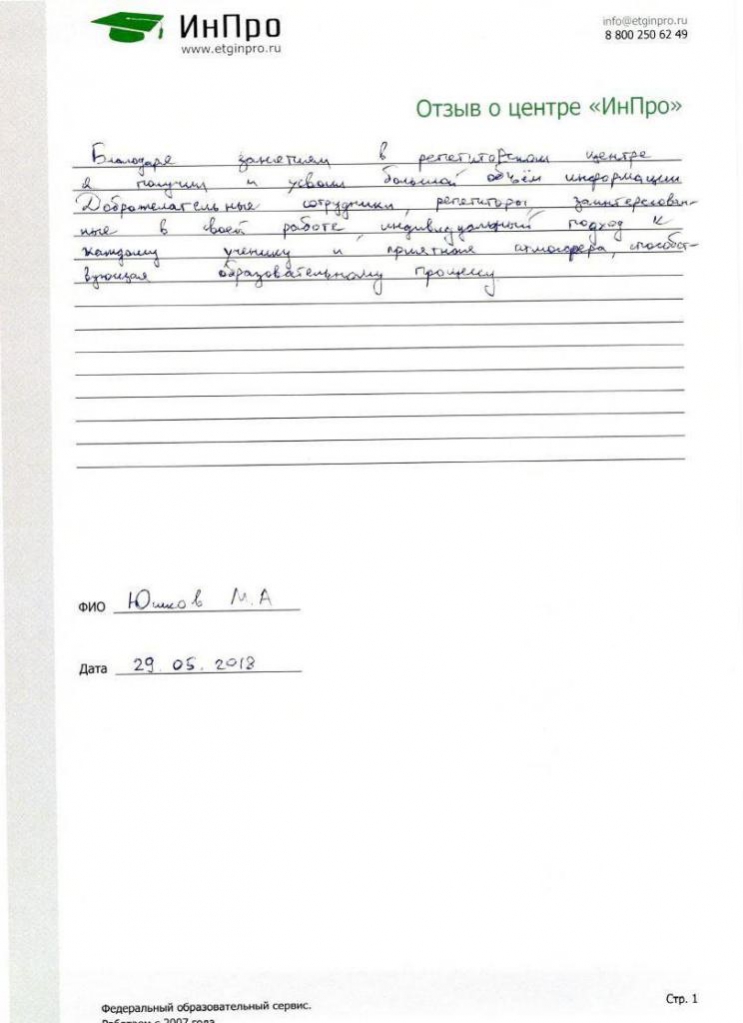 ИнПро
www.etginpro.ru
info@etginpro.ru
8 800 250 62 49
Отзыв о центре «ИнПро»
Благодаря занятиям в репетиторском центре
я получил и усвоил большой объём информации.
Доброжелательные сотрудники, репетиторы, заинтересован-
ные в своей работе, индивидуальный подход к
каждому ученику и приятная атмосфера, способст-
вующая образовательному процессу.
ФИО Юшков М.А
Дата 29.05.2018
Федеральный образовательный сервис.
Стр. 1
Работаем с 2007 года